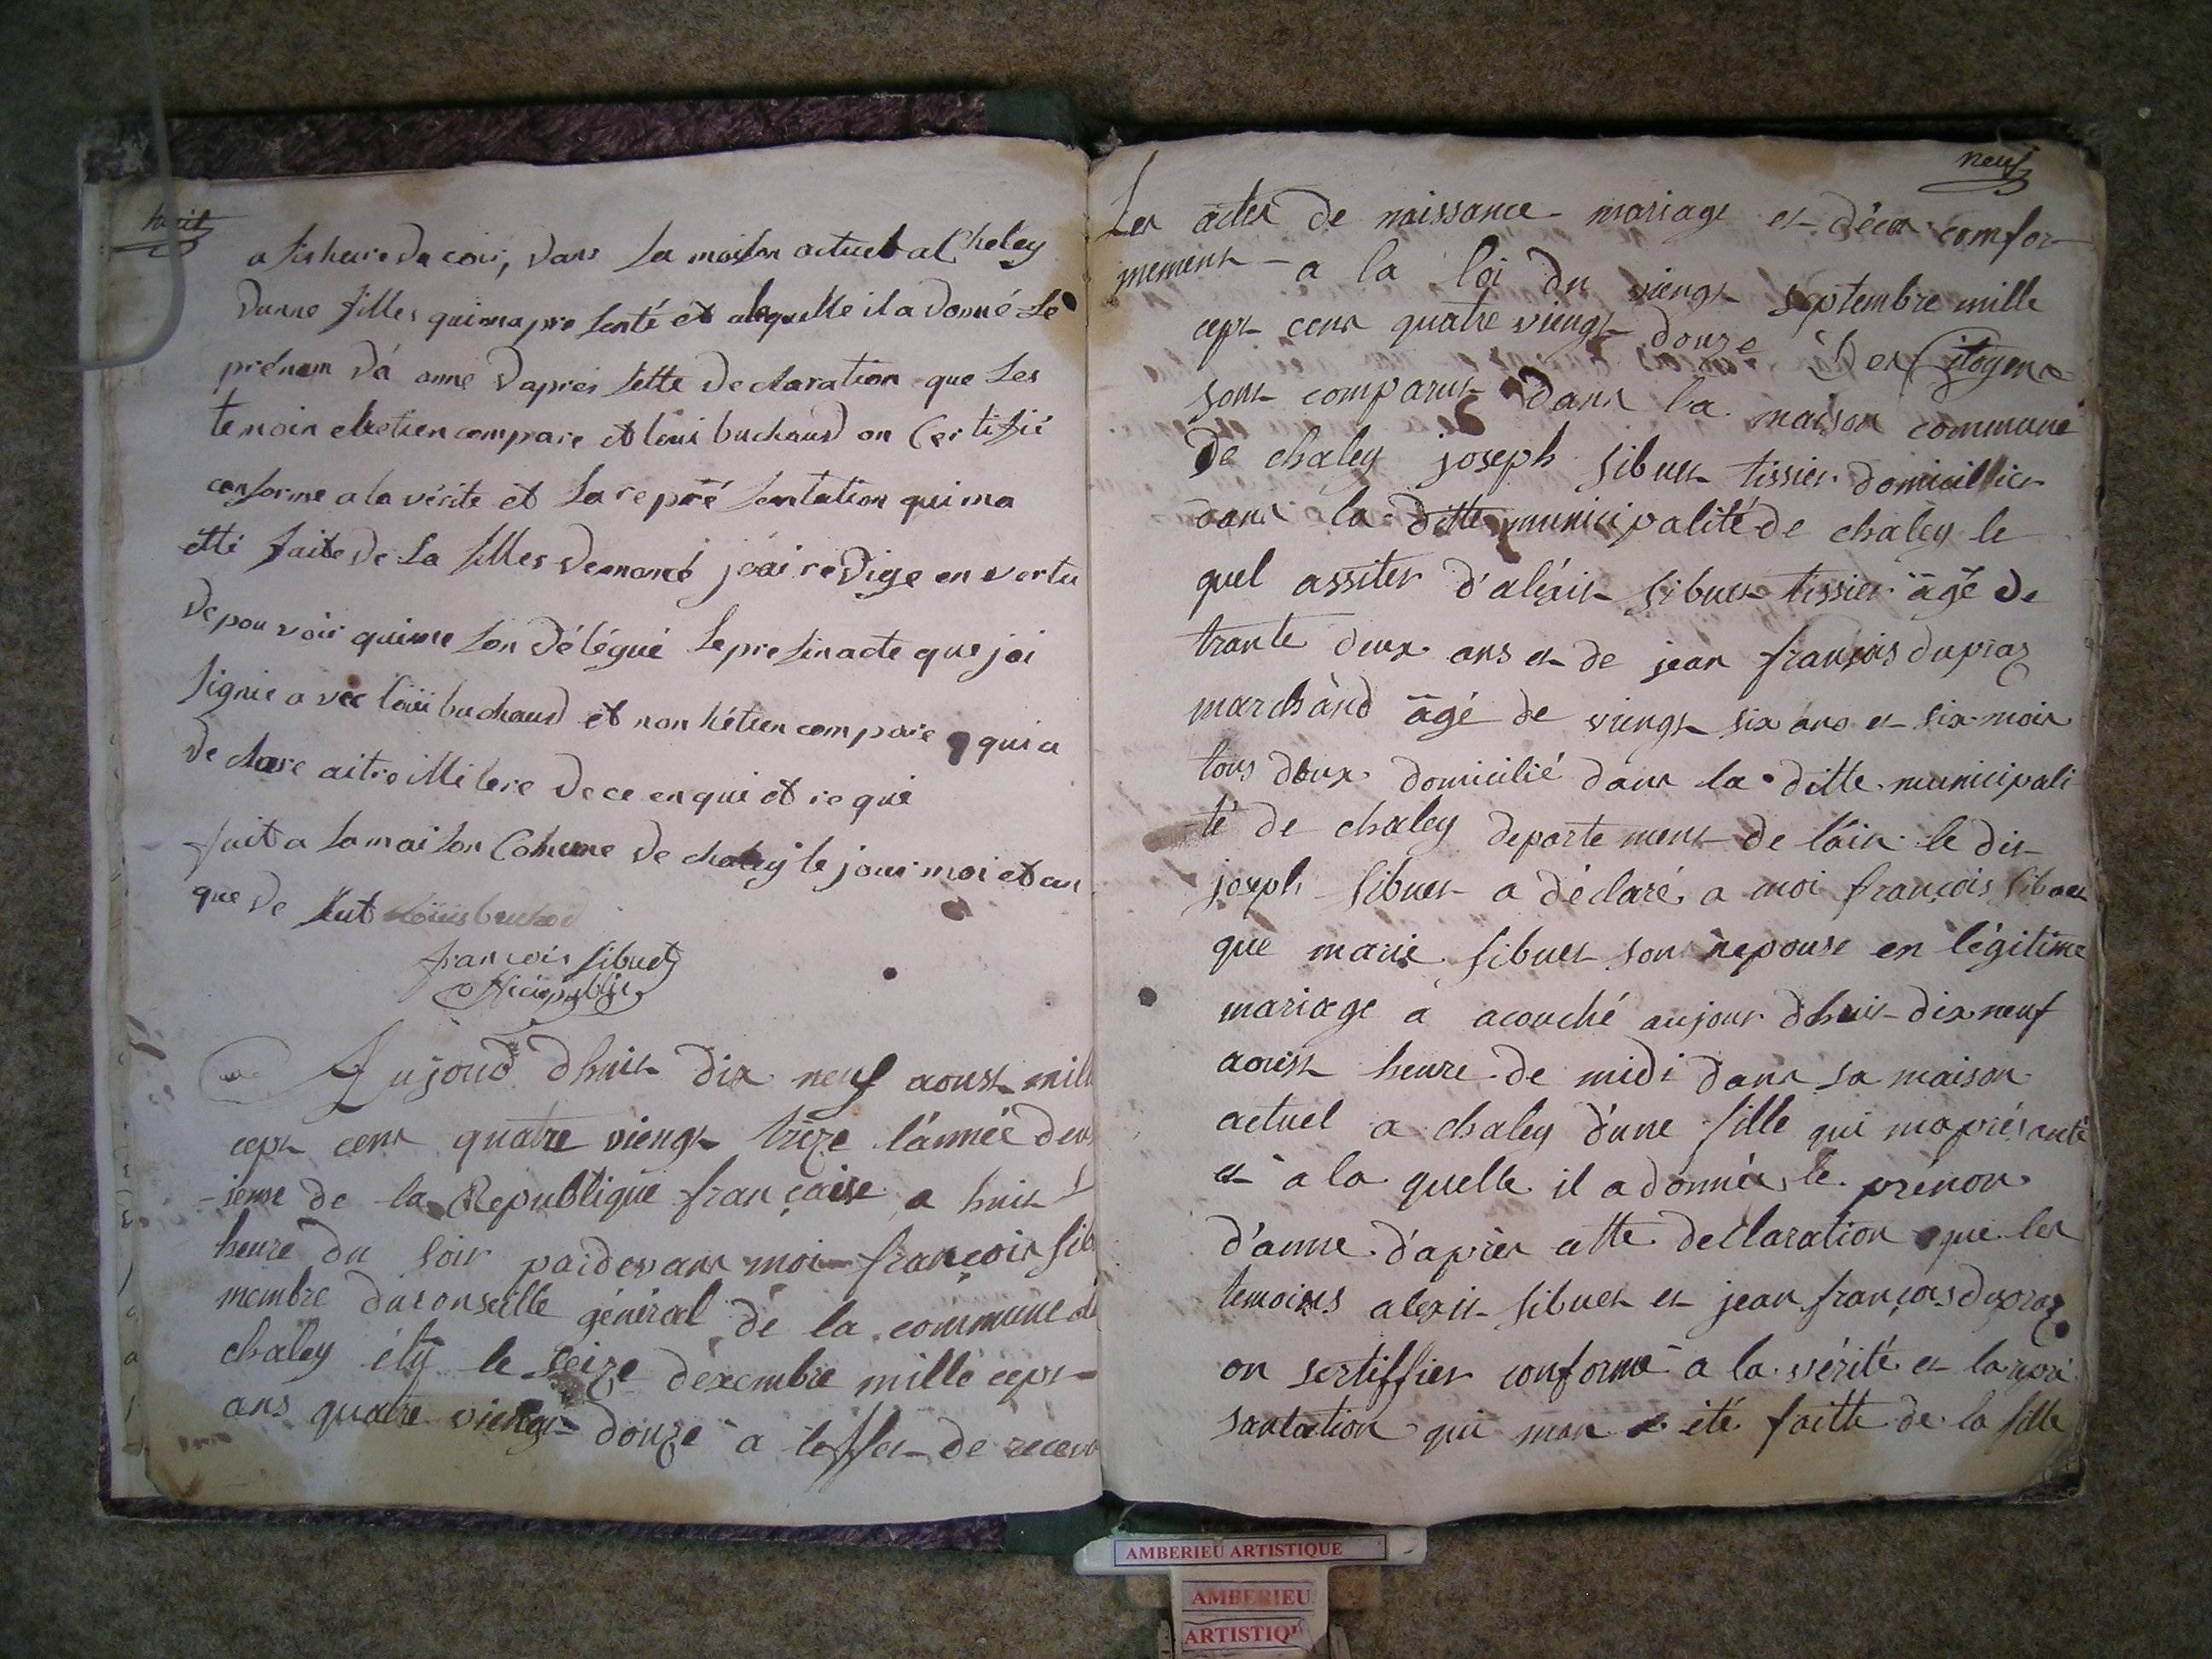 huit
a sis heure de coir, dans la maison actuel a Cheley
dunne filles qui ma pre senté et alaquelle il a donné le
prénom dá anne dapres sette declaration que les
temoin etietien compare et loui buchaud on Certifié
conforme a la vérite et la repré sentation qui ma
etté faite de la filles denomé jeai redige en vertu
de pou voir quime son délégué le pre sin acte que jai
signie a vec loüi buchaud et non hétien compaie qui a
de clare aitre illi tere de ce en qui et re qui
fait a la mai son Cohmune de chaley le jour moi et an
que de sut Loüis buchod
françois sibuet
officie public
Aujourd dhuit dix neuf aoust mill
cept cent quatre viengt trèze l'année deu
-ieme de la Republique française a huit
heure du soir pardevant moi françois sib
membre du conseille général de la commune de
chaley élÿ le seize déxembre mille cept
ans quatre viengt donze a leffet de recevo
neuf
Les actes de naissance mariage et décès comfor
mement a la loi du viengt septembre mille
cept cent quatre viengt donze Des Citoyens
sont comparut dans la maison commune
De chaley joseph sibuet tissier domicillier
dans la ditte municipalité de chaley le
quel assiter d'aléxit sibuet tissier âgé de
trante deux ans et de jean françois dupraz
marchànd âgé de viengt six ans et six mois
tous deux domicilié dans la ditte municipali
té de chaley departement de l'áin le dit
joseph sibuet a déclaré a moi françois sibuet
que marie sibuet son nepouse en légitime
mariage a acouché aujour dhuit dix neuf
aoust heure de midi dans sa maison
actuel a chaley d'une fille qui ma présanté
et a la quelle il a donnée le prénon
d'anne d'aprèr cette declaration que les
temoins alexit sibuet et jean françois dupraz
on sertiffier conforme a la vérité et la repré
santation qui man a été faitte de la fille
AMBERIEU ARTISTIQUE
AMBERIEU
ARTISTIQ'